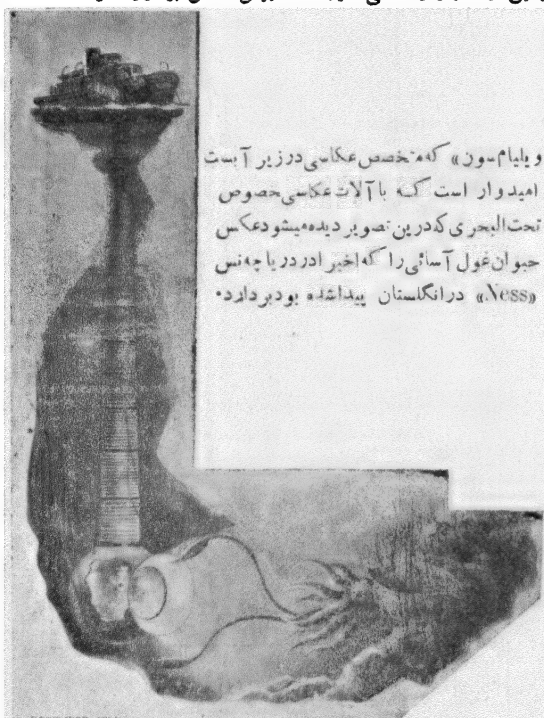 ویلیام سون» که متخصص عکاسی در زیر آبست
امیدوار است که با آلات عکاسی مخصوص
تحت‌البحری که درین تصویر دیده میشود عکس
حیوان غول آسائی را که اخیرا در دریاچه نس
«Ness» در انگلستان پیداشده بود بردارد.